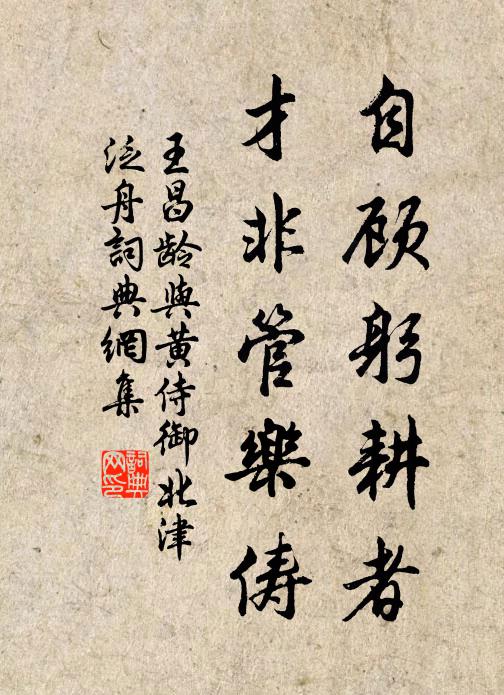 自顾躬耕者
才非管樂俦
王昌龄與黄侍御北津
泛舟詞典網集
詞典网印